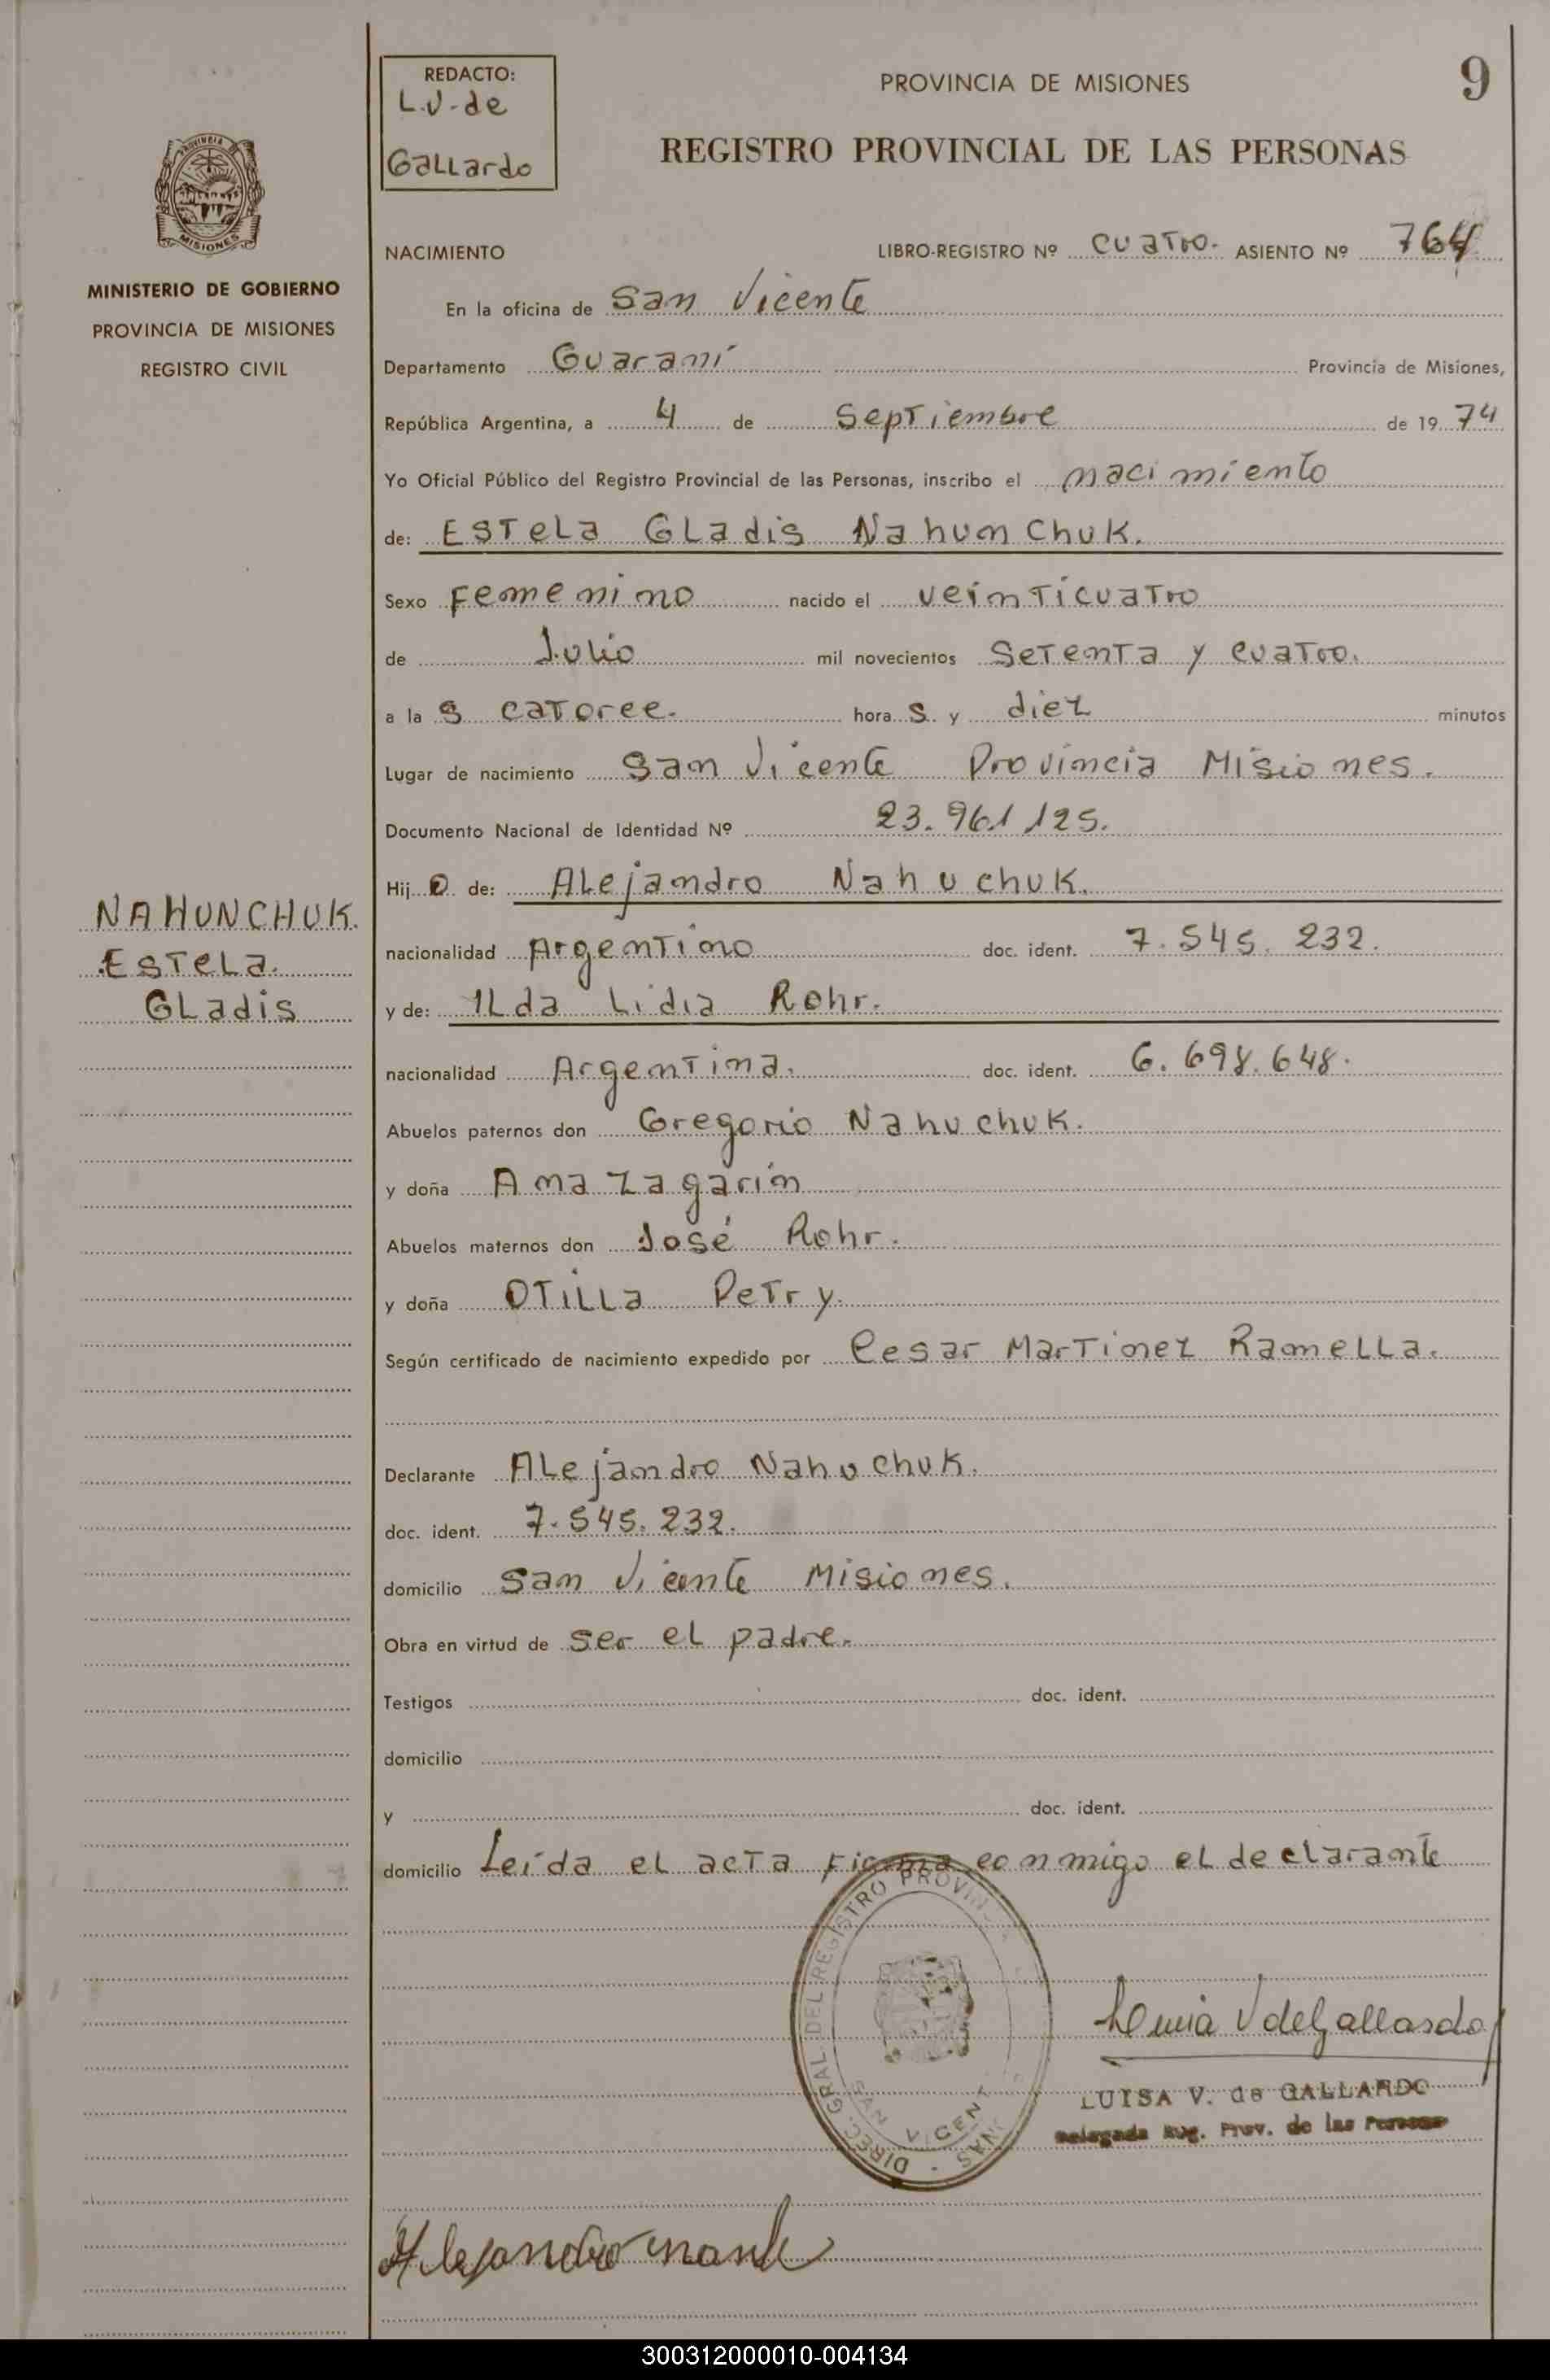 REDACTO:
L.V. de
Gallardo
PROVINCIA DE MISIONES
9
REGISTRO PROVINCIAL DE LAS PERSONAS
PROVINCIA DE
MISIONES
MINISTERIO DE GOBIERNO
PROVINCIA DE MISIONES
REGISTRO CIVIL
NACIMIENTO LIBRO-REGISTRO Nº cuatro. ASIENTO Nº 764
En la oficina de San Vicente
Departamento Guaraní Provincia de Misiones,
República Argentina, a 4 de Septiembre de 1974
Yo Oficial Público del Registro Provincial de las Personas, inscribo el nacimiento
de: Estela Gladis Nahunchuk.
Sexo Femenino nacido el veinticuatro
de Julio mil novecientos setenta y cuatro.
a las catorce. horas y diez minutos
Lugar de nacimiento San Vicente Provincia Misiones.
Documento Nacional de Identidad Nº 23.961.125.
Hijo de: Alejandro Nahuchuk.
NAHUNCHUK.
Estela.
Gladis
nacionalidad Argentino doc. ident. 7.545.232.
y de: Ilda Lidia Rohr.
nacionalidad Argentina. doc. ident. 6.698.648.
Abuelos paternos don Gregorio Nahuchuk.
y doña Ana Zagarin
Abuelos maternos don José Rohr.
y doña Otilla Petry.
Según certificado de nacimiento expedido por Cesar Martinez Ramella.
Declarante Alejandro Nahuchuk.
doc. ident. 7.545.232.
domicilio San Vicente Misiones.
Obra en virtud de ser el padre.
Testigos doc. ident.
domicilio
y doc. ident.
domicilio Leída el acta firma conmigo el declarante
DIREC. GRAL. DEL REGISTRO PROVIN
SAN VICENT
Luisa V de Gallardo
LUISA V. de GALLARDO
Delegada Reg. Prov. de las Personas
Alejandro
300312000010-004134